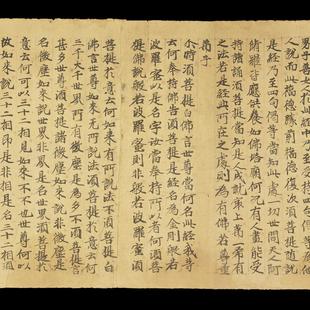 男子善女人於此經中乃至受持四句偈等
人說而此福德勝前福德復次須菩提隨說
是經乃至四句偈等當知此處一切世間天人阿
脩羅皆應供養如佛塔廟何況有人盡能受
持讀誦須菩提當知是人成就最上第一希有
之法若是經典所在之處則為有佛若尊重
弟子
爾時須菩提白佛言世尊當何名此經我等
云何奉持佛告須菩提是經名為金剛般若
波羅蜜以是名字汝當奉持所以者何須菩
提佛說般若波羅蜜則非般若波羅蜜須
菩提於意云何如來有所說法不須菩提白
佛言世尊如來无所說須菩提於意云何
三千大千世界所有微塵是為多不須菩提言
甚多世尊須菩提諸微塵如來說非微塵是
名微塵如來說世界非世界是名世界須菩提於
意云何可以三十二相見如來不不也世尊何以
故如來說三十二相即是非相是名三十二相須